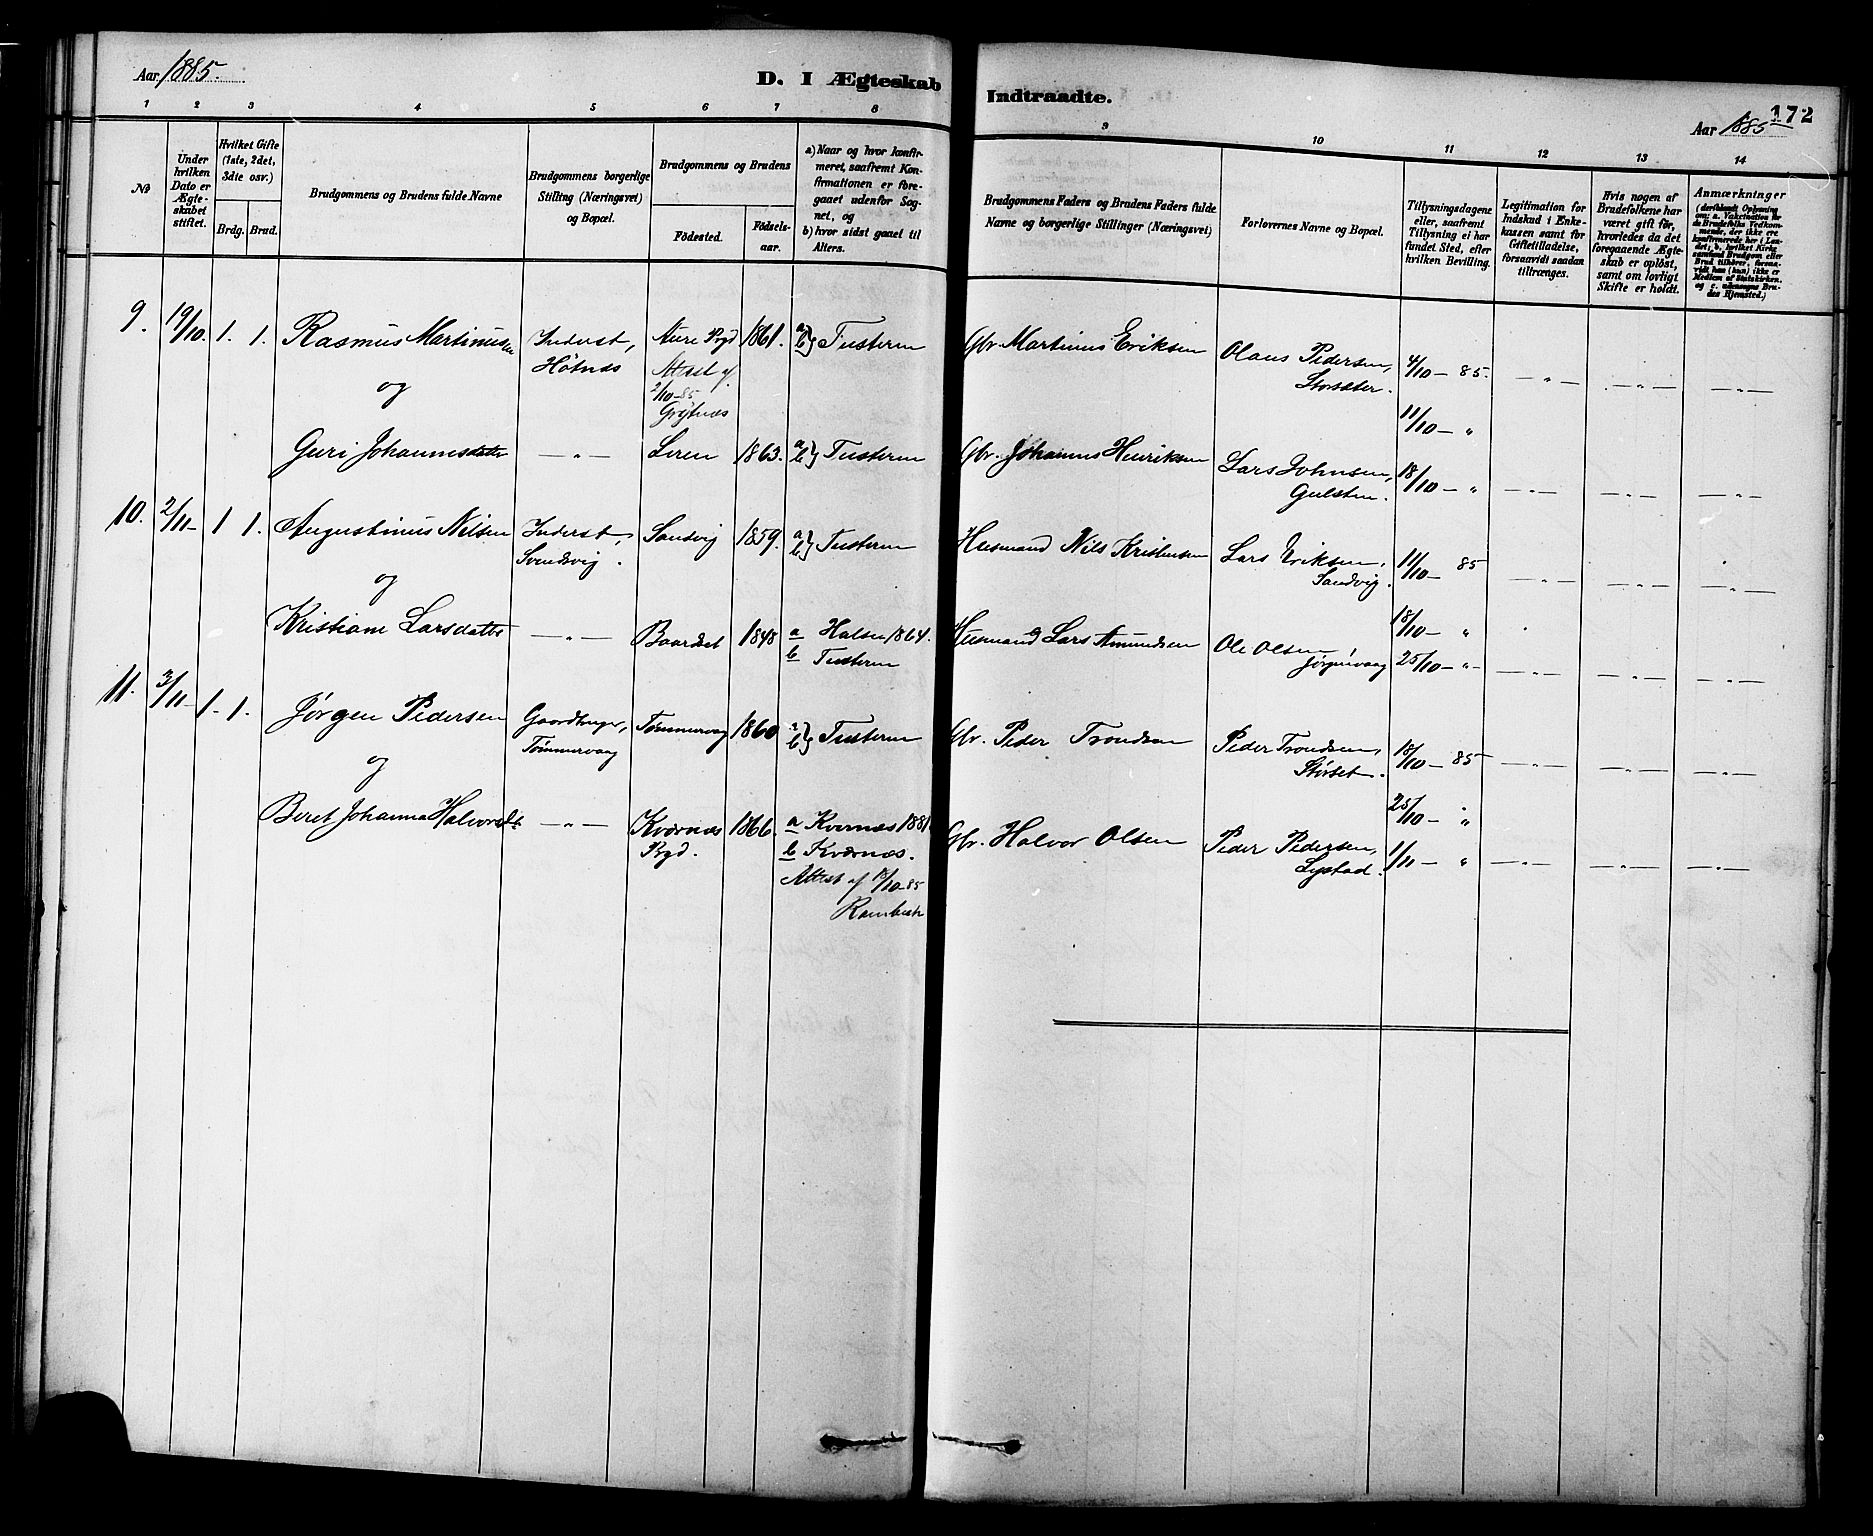 Aar 1885.
D. I Ægteskab
Indtraadte.
172
Aar 1885
1 2 3 4 5 6 7 8 9 10 11 12 13 14
No
Under hvilken Dato er Ægteskabet stiftet.
Hvilket Gifte (1ste, 2det, 3die osv.)
Brdg. Brud.
Brudgommens og Brudens fulde Navne
Brudgommens borgerlige Stilling (Næringsvei) og Bopæl.
Brudgommens og Brudens
Fødested.
Fødselsaar.
a) Naar og hvor konfirmeret, saafremt Konfirmationen er foregaaet udenfor Sognet, og
b) hvor sidst gaaet til Alters.
Brudgommens Faders og Brudens Faders fulde Navne og borgerlige Stillinger (Næringsvei)
Forlovernes Navne og Bopæl.
Tillysningsdagene eller, saafremt Tillysning ei har fundet Sted, efter hvilken Bevilling.
Legitimation for Indskud i Enkekassen samt for Giftetilladelse, forsaavidt saadan tiltrænges.
Hvis nogen af Brudefolkene har været gift før, hvorledes da det foregaaende Ægteskab er opløst, samt om lovligt Skifte er holdt.
Anmærkninger
(deriblandt Oplysning om: a. Vakcination for de Brudefolks Vedkommende, der ikke ere konfirmerede her i Landet; b. hvilket Kirkesamfund Brudgom eller Brud tilhører, forsaavidt han (hun) ikke er Medlem af Statskirken, og c. udensogns Brudes Hjemsted.)
9. 19/10. 1. 1. Rasmus Martinusen Inderst, Aure Prgd 1861. a b} Tusteren Gbr. Martinus Eriksen Olaus Pedersen, 4/10 - 85. — " — — " — — " —
Høtnæs Attest af Storsæter.
og 2/10-85
Grytnæs 11/10 - "
Guri Johannesdatter — " — Leren 1863. a b} Tusteren Gbr. Johannes Henriksen Lars Johnsen, 18/10 - " — " — — " — — " —
Gulsten.
10. 2/11- 1 1. Augustinus Nilsen Inderst, Sandvig 1859. a b} Tusteren Husmand Nils Kristensen Lars Eriksen, 11/10 - 85 — " — — " — — " —
Svendsvig. Sandvig.
og
18/10 - "
Kristiane Larsdatter — " — Baardset 1848 a Halsen 1864. Husmand Lars Amundsen Ole Olsen 25/10 - " — " — — " — — " —
b Tusteren Jørgenvaag
11. 3/11- 1. 1. Jørgen Pedersen Gaardbruger, Tømmervaag 1860 a b} Tusteren Gbr. Peder Trondsen Peder Trondsen, 18/10 - 85 — " — — " — — " —
Tømmervaag Storset.
og
25/10 - "
Beret Johanna Halvorsdt. — " — Kværnæs 1866. a Kvernæs 1881 Gbr. Halvor Olsen Peder Pedersen, 1/11 - " — " — — " — — " —
Prgd. b Kværnæs. Lystad.
Attest af /10-85